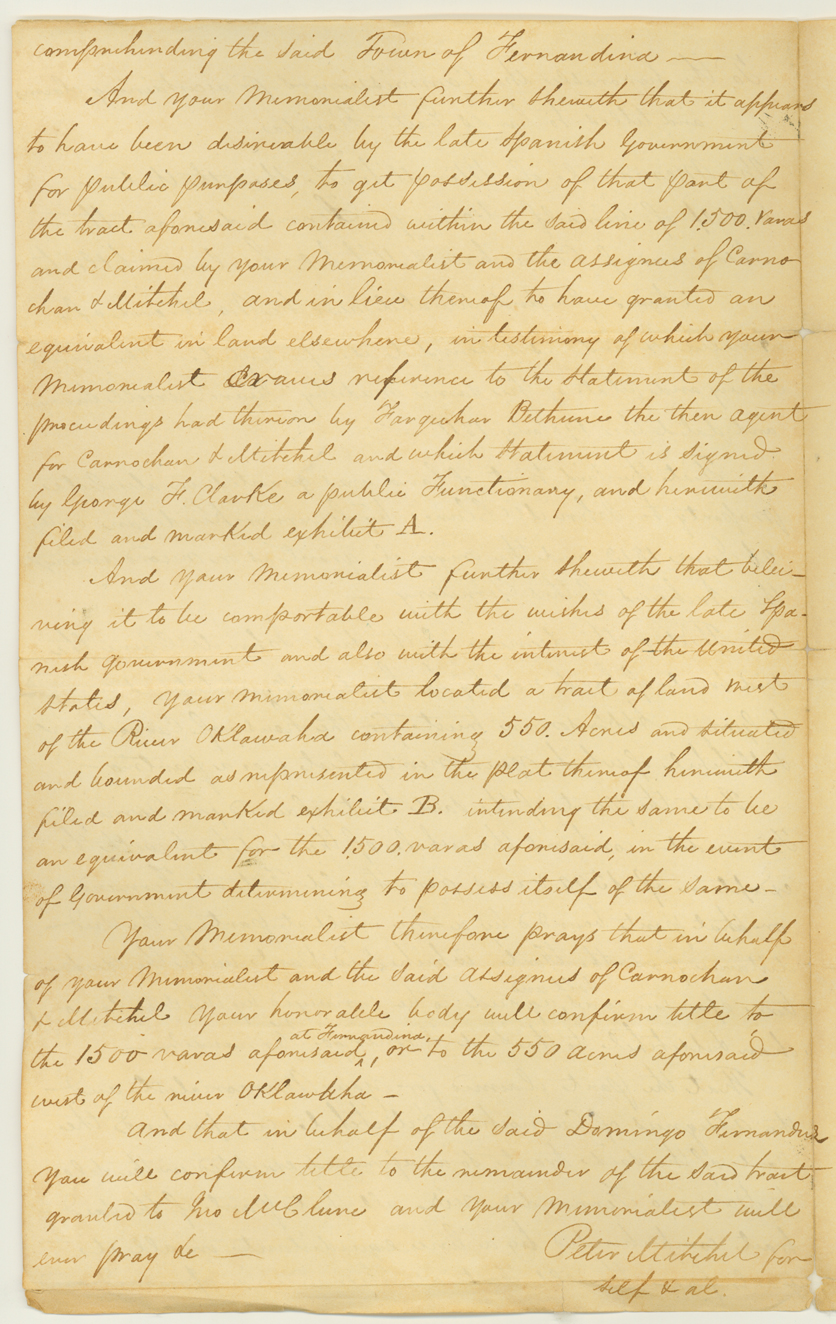 comprehending the said Town of Fernandina —
And your Memorialist further sheweth that it appears
to have been desireable by the late Spanish Government
for public purposes, to get possession of that part of
the tract aforesaid contained within the said line of 1.500. varas
and claimed by your Memorialist and the assignees of Carno-
chan & Mitchel, and in lieu thereof to have granted an
equivalent in land elsewhere, in testimony of which your
Memorialist craves reference to the statement of the
proceedings had thereon by Farquhar Bethune the then agent
for Carnochan & Mitchel and which statement is signed
by George F. Clarke a public Functionary, and herewith
filed and marked exhibit A.
And your Memorialist further sheweth that belei-
ving it to be comportable with the wishes of the late Spa-
nish government and also with the interest of the United
States, your memorialist located a tract of land west
of the River Oklawaha containing 550. Acres and situated
and bounded as represented in the plat thereof herewith
filed and marked exhibit B. intending the same to be
an equivalent for the 1.500. varas aforesaid, in the event
of Government determining to possess itself of the same —
Your Memorialist therefore prays that in behalf
of your Memorialist and the said assignees of Carnochan
& Mitchel your honorable body will confirm title to
the 1500 varas aforesaid ^ at Fernandina, or to the 550 acres aforesaid
west of the river Oklawaha —
And that in behalf of the said Domingo Fernandez
you will confirm title to the remainder of the said tract
granted to Jno McClure and your Memorialist will
ever pray &c —
Peter Mitchel for
self & al.